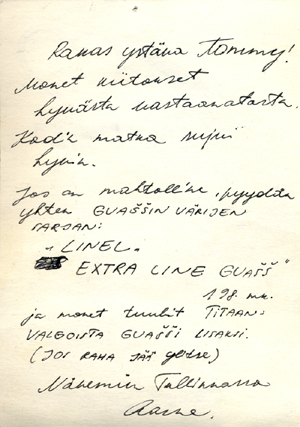 Rakas ystävä Tommy!
Monet kiitokset
hyvästä vastaanotosta.
Kod'k matka sujui
hyvin.
Jos on mahdolli'ne, pyydän
yhten GUAŠŠIN VÄRIJEN
SARJAN:
„LINEL„
EXTRA LINE GUAŠŠ"
198. mk.
ja monet tuubit TITAAN:
VALGOISTA GUAŠŠI LISAKSI.
(JOS RAHA JÄÄ
Näkemiin Tallinnassa